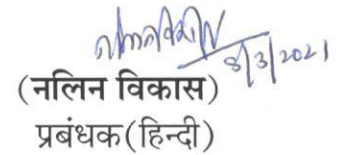 8/3/2021
(नलिन विकास)
प्रबंधक(हिन्दी)